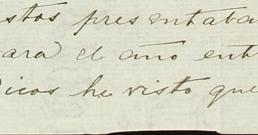 stos presentaba
ara el año ent
icos he visto que